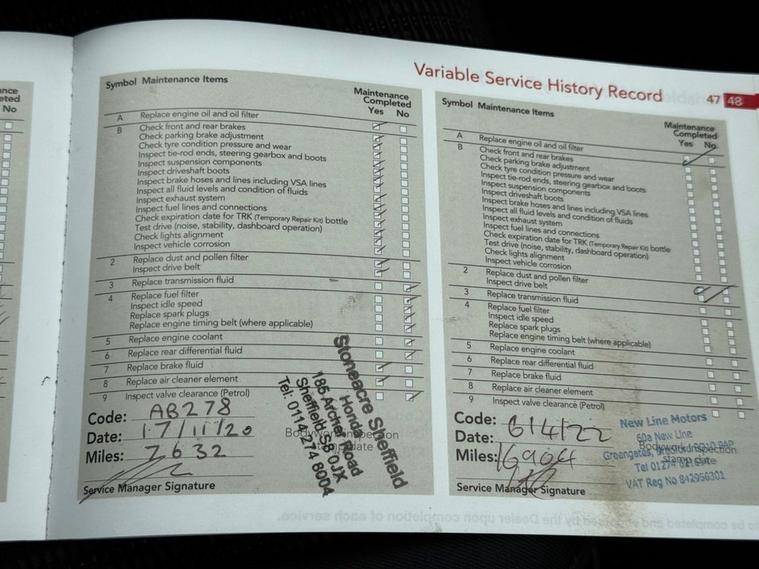 nce
eted
No
Variable Service History Record
47 48
Symbol Maintenance Items
Maintenance
Completed
Yes No
A Replace engine oil and oil filter
B Check front and rear brakes
Check parking brake adjustment
Check tyre condition pressure and wear
Inspect tie-rod ends, steering gearbox and boots
Inspect suspension components
Inspect driveshaft boots
Inspect brake hoses and lines including VSA lines
Inspect all fluid levels and condition of fluids
Inspect exhaust system
Inspect fuel lines and connections
Check expiration date for TRK (Temporary Repair Kit) bottle
Test drive (noise, stability, dashboard operation)
Check lights alignment
Inspect vehicle corrosion
2 Replace dust and pollen filter
Inspect drive belt
3 Replace transmission fluid
4 Replace fuel filter
Inspect idle speed
Replace spark plugs
Replace engine timing belt (where applicable)
5 Replace engine coolant
6 Replace rear differential fluid
7 Replace brake fluid
8 Replace air cleaner element
9 Inspect valve clearance (Petrol)
Code: AB278
Date: 17/11/20
Miles: 7632
Service Manager Signature
Stoneacre Sheffield
Honda
185 Archer Road
Sheffield S8 0JX
Tel: 0114 274 8004
Symbol Maintenance Items
Maintenance
Completed
Yes No
A Replace engine oil and oil filter
B Check front and rear brakes
Check parking brake adjustment
Check tyre condition pressure and wear
Inspect tie-rod ends, steering gearbox and boots
Inspect suspension components
Inspect driveshaft boots
Inspect brake hoses and lines including VSA lines
Inspect all fluid levels and condition of fluids
Inspect exhaust system
Inspect fuel lines and connections
Check expiration date for TRK (Temporary Repair Kit) bottle
Test drive (noise, stability, dashboard operation)
Check lights alignment
Inspect vehicle corrosion
2 Replace dust and pollen filter
Inspect drive belt
3 Replace transmission fluid
4 Replace fuel filter
Inspect idle speed
Replace spark plugs
Replace engine timing belt (where applicable)
5 Replace engine coolant
6 Replace rear differential fluid
7 Replace brake fluid
8 Replace air cleaner element
9 Inspect valve clearance (Petrol)
Code:
Date: 6/4/22
Miles:
Service Manager Signature
New Line Motors
60a New Line
Greengates,
Tel 01274
VAT Reg No 842956301